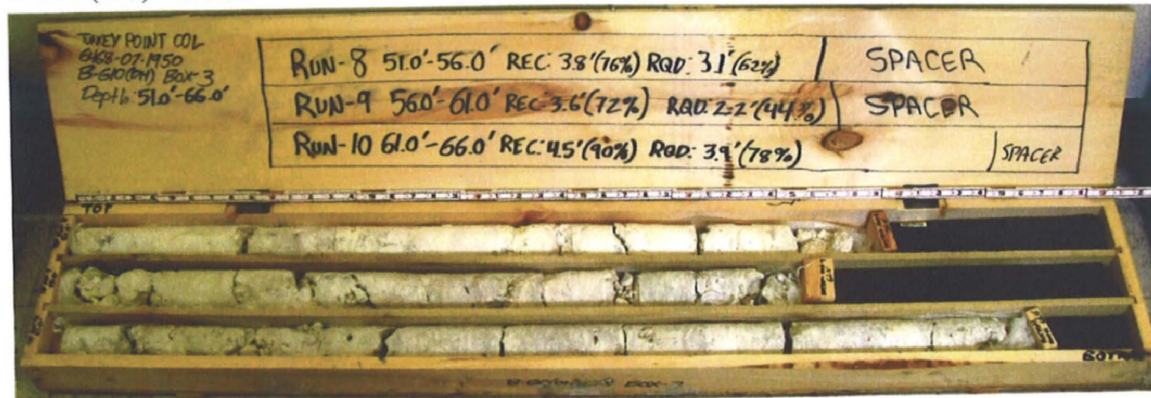 TURKEY POINT COL
6468-07-1950
B-610(DH) BOX-3
Depth: 51.0'-66.0'
RUN-8 51.0'-56.0' REC: 3.8'(76%) RQD: 3.1'(62%) SPACER
RUN-9 56.0'-61.0' REC: 3.6'(72%) RQD: 2.2'(44%) SPACER
RUN-10 61.0'-66.0' REC: 4.5'(90%) RQD: 3.9'(78%) SPACER
TOP
BOX-3